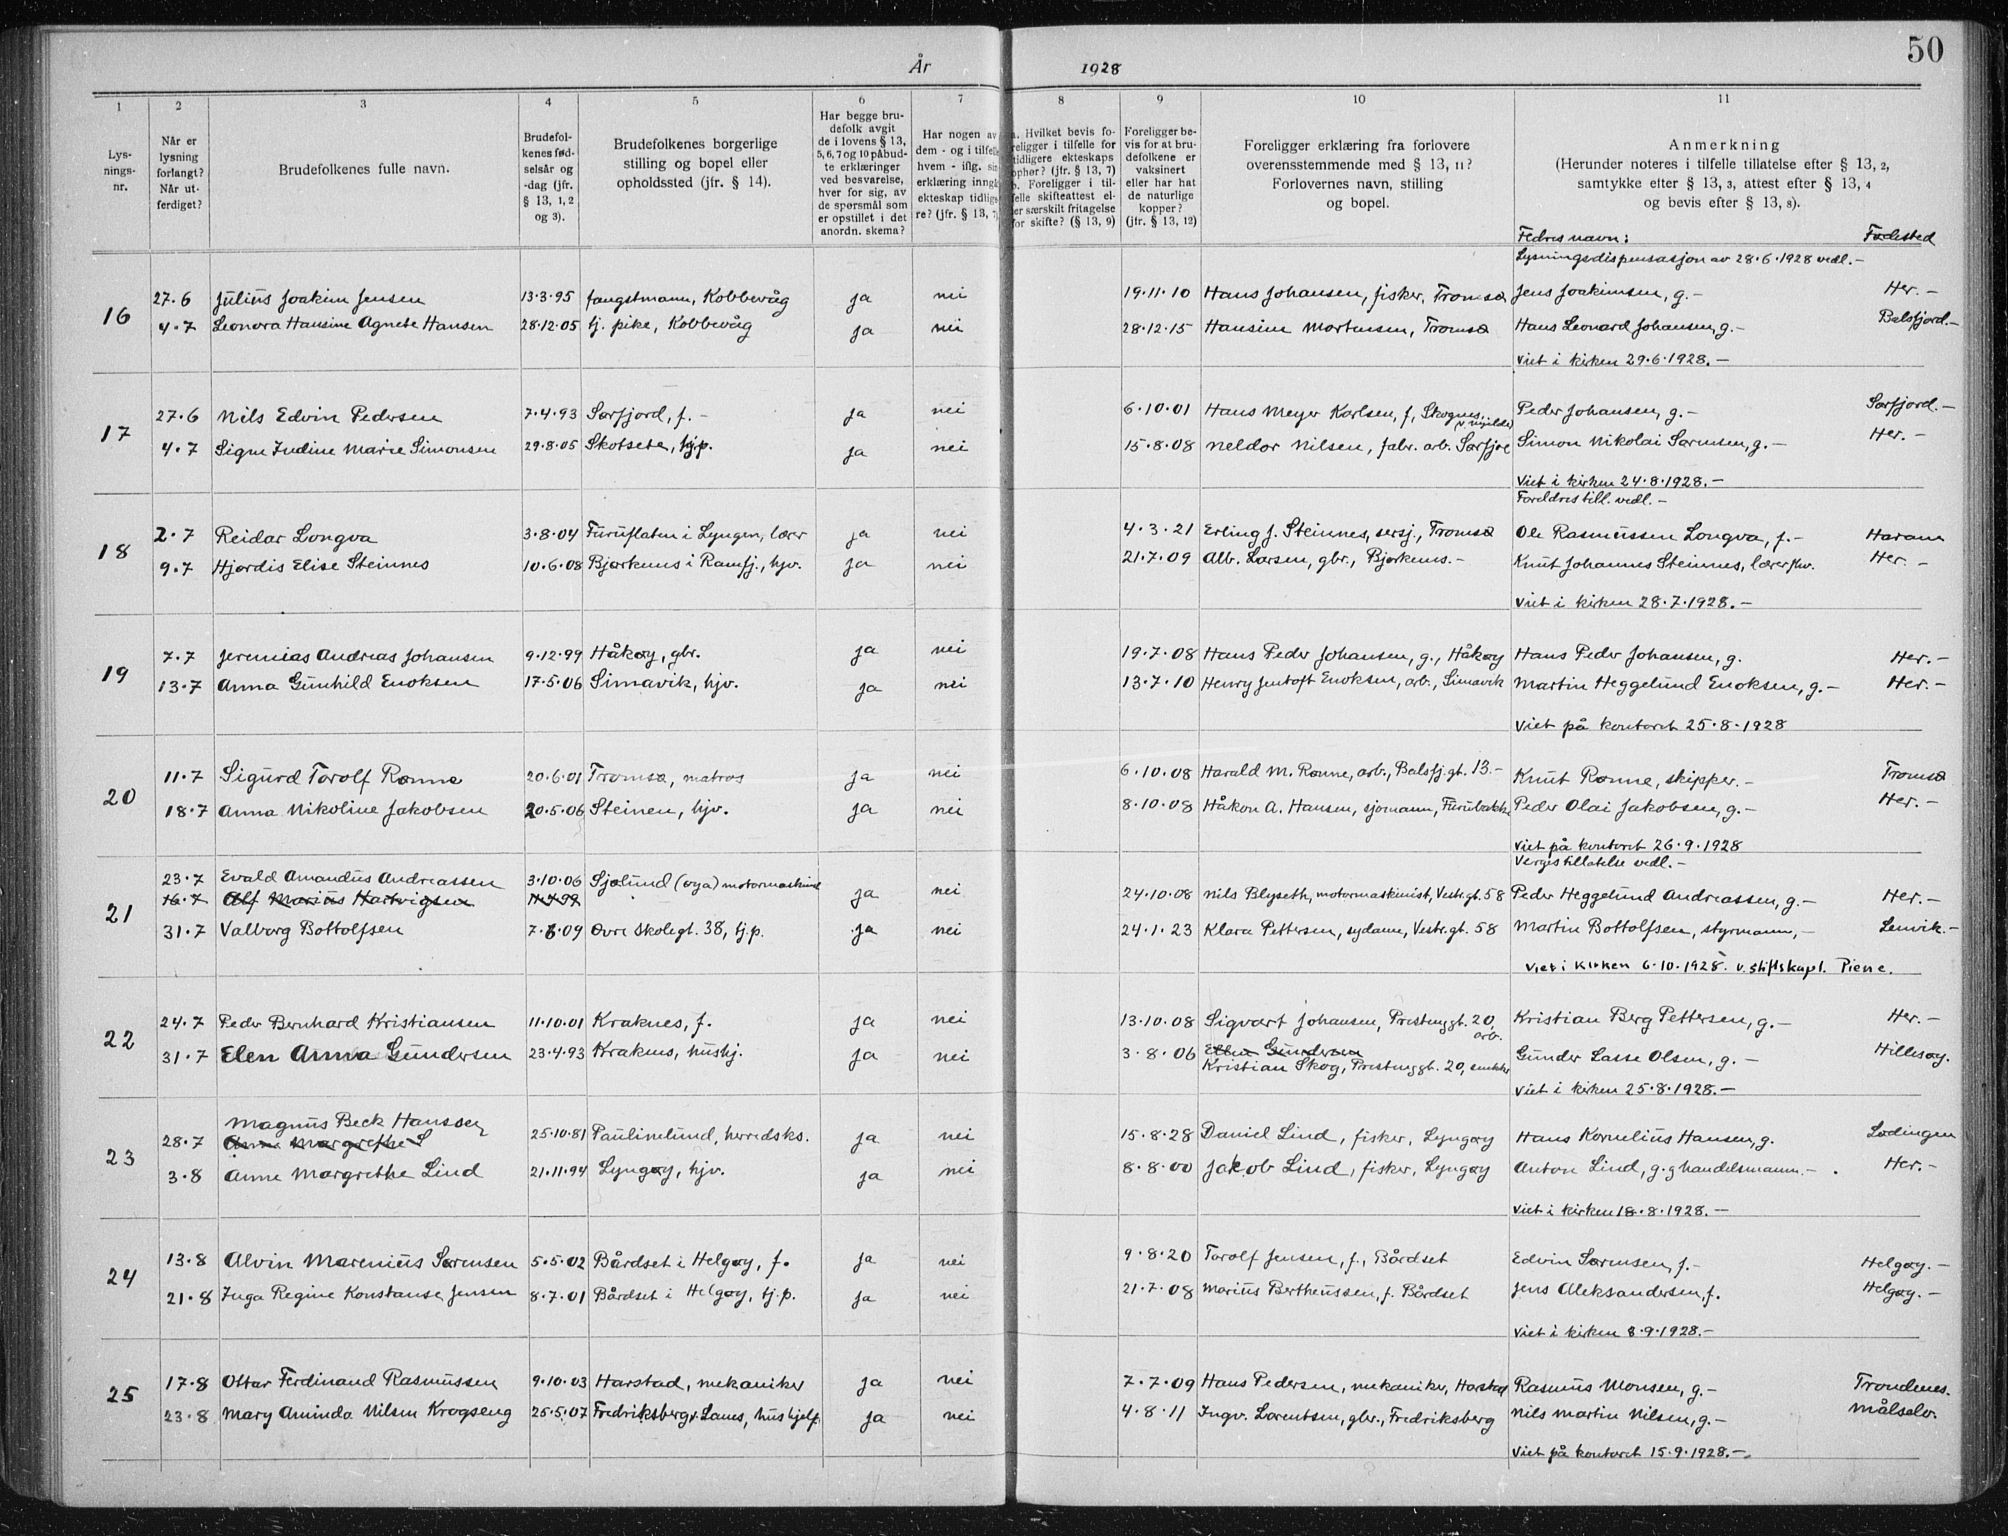 50
År 1928
1 2 3 4 5 6 7 8 9 10 11
Lysningsnr.
Når er lysning forlangt? Når utferdiget?
Brudefolkenes fulle navn.
Brudefolkenes fødselsår og -dag (jfr. § 13, 1, 2 og 3).
Brudefolkenes borgerlige stilling og bopel eller opholdssted (jfr. § 14).
Har begge brudefolk avgit de i lovens § 13, 5, 6, 7 og 10 påbudte erklæringer ved besvarelse, hver for sig, av de spørsmål som er opstillet i det anordn. skema?
Har nogen av dem - og i tilfelle hvem - iflg. sin erklæring inngått ekteskap tidligere? (jfr. § 13, 7)
a. Hvilket bevis foreligger i tilfelle for tidligere ekteskaps ophør? (jfr. § 13, 7) b. Foreligger i tilfelle skifteattest eller særskilt fritagelse for skifte? (§ 13, 9)
Foreligger bevis for at brudefolkene er vaksinert eller har hat de naturlige kopper? (jfr. § 13, 12)
Foreligger erklæring fra forlovere overensstemmende med § 13, 11? Forlovernes navn, stilling og bopel.
Anmerkning (Herunder noteres i tilfelle tillatelse efter § 13, 2, samtykke etter § 13, 3, attest efter § 13, 4 og bevis efter § 13, 8).
Fedres navn: Fødested
Lysningsdispensasjon av 28.6.1928 vedl. -
16 27.6 Julius Joakim Jensen 13.3.95 fangstmann, Kobbevåg ja nei 19.11.10 Hans Johansen, fisker, Tromsø Jens Joakimsen, g. - Her. -
4.7 Leonora Hansine Agnete Hansen 28.12.05 tj. pike, Kobbevåg ja nei 28.12.15 Hansine Mortensen, Tromsø Hans Leonard Johansen, g. - Balsfjord. -
Viet i kirken 29.6.1928. -
17 27.6 Nils Edvin Pedersen 7.4.93 Sørfjord, f. - ja nei 6.10.01 Hans Meyer Karlsen, f, Skognes, Peder Johansen, g. - Sørfjord. -
4.7 Signe Indine Marie Simonsen 29.8.05 Skotsete, tj.p. ja nei 15.8.08 Neldor Nilsen, fabr. arb. Sørfjor Simon Nikolai Sørensen, g. - Her. -
Viet i kirken 24.8.1928. -
Foreldres till. vedl. -
18 2.7 Reidar Longva 3.8.04 Furuflaten i Lyngen, lærer ja nei 4.3.21 Erling J. Steinnes, sersj., Tromsø Ole Rasmussen Longva, f. - Haram
9.7 Hjørdis Elise Steinnes 10.6.08 Bjørkenes i Ramfj., hjv. ja nei 21.7.09 Alb. Larsen, gbr., Bjørkenes. - Knut Johannes Steinnes, lærer Her. -
Viet i kirken 28.7.1928. -
19 7.7 Jeremias Andreas Johansen 9.12.99 Håkøy, gbr. ja nei 19.7.08 Hans Peder Johansen, g., Håkøy Hans Peder Johansen, g. Her. -
13.7 Anna Gunhild Enoksen 17.5.06 Simavik, hjv. ja nei 13.7.10 Henry Jentoft Enoksen, arb., Simavik Martin Heggelund Enoksen, g. - Her. -
Viet på kontoret 25.8.1928
20 11.7 Sigurd Torolf Rønne 20.6.01 Tromsø, matros ja nei 6.10.08 Harald M. Rønne, arb., Balsfj.gt. 13. - Knut Rønne, skipper. - Tromsø
18.7 Anna Nikoline Jakobsen 20.5.06 Steinen, hjv. ja nei 8.10.08 Håkon A. Hansen, sjømann, Furubakke Peder Olai Jakobsen, g. - Her. -
Viet på kontoret 26.9.1928
Verges tillatelse vedl. -
21 23.7 Evald Amandus Andreassen 3.10.06 Sjølund (øya) motormaskinist ja nei 24.10.08 Nils Blyseth, motormaskinist, Vestr.gt. 58 Peder Heggelund Andreassen, g. - Her. -
16.7 Alf Marius Hartvigsen
31.7 Valborg Bottolfsen 7.6.09 Øvre Skolegt. 38, tj.p. ja nei 24.1.23 Klara Pettersen, sydame, Vestr.gt. 58 Martin Bottolfsen, styrmann, - Lenvik. -
Viet i kirken 6.10.1928. v. stiftskapl. Piene.
22 24.7 Peder Bernhard Kristiansen 11.10.01 Kraknes, f. ja nei 13.10.08 Sigvart Johansen, Prestenggt. 20, arb. Kristian Berg Pettersen, g. - Her. -
31.7 Elen Anna Gundersen 23.4.93 Kraknes, hushj. ja nei 3.8.06 Ellen Gundersen Gunder Lasse Olsen, g. - Hillesøy.
Kristian Skog, Prestenggt. 20, snekker
Viet i kirken 25.8.1928. -
23 28.7 Magnus Beck Hanssen 25.10.81 Paulinelund, herredsks. ja nei 15.8.28 Daniel Lind, fisker, Lyngøy Hans Kornelius Hansen, g. Lødingen
Anne Margrethe S
3.8 Anne Margrethe Lind 21.11.94 Lyngøy, hjv. ja nei 8.8.00 Jakob Lind, fisker, Lyngøy Anton Lind, g. g handelsmann. - Her. -
Viet i kirken 18.8.1928. -
24 13.8 Alvin Marenius Sørensen 5.5.02 Bårdset i Helgøy, f. ja nei 9.8.20 Torolf Jensen, f., Bårdset Edvin Sørensen, f. - Helgøy. -
21.8 Inga Regine Konstanse Jensen 8.7.01 Bårdset i Helgøy, tj.p. ja nei 21.7.08 Marius Bertheussen, f. Bårdset Jens Aleksandersen, f. Helgøy. -
Viet i kirken 8.9.1928. -
25 17.8 Ottar Ferdinand Rasmussen 9.10.03 Harstad, mekaniker ja nei 7.7.09 Hans Pedersen, mekaniker, Harstad Rasmus Monsen, g. - Trondenes.
23.8 Mary Aminda Nilsen Krogseng 25.5.07 Fredriksberg v. Lanes, hushjelp ja nei 4.8.11 Ingv. Lorentsen, gbr., Fredriksberg Nils Martin Nilsen, g. - Målselv.
Viet på kontoret 15.9.1928. -